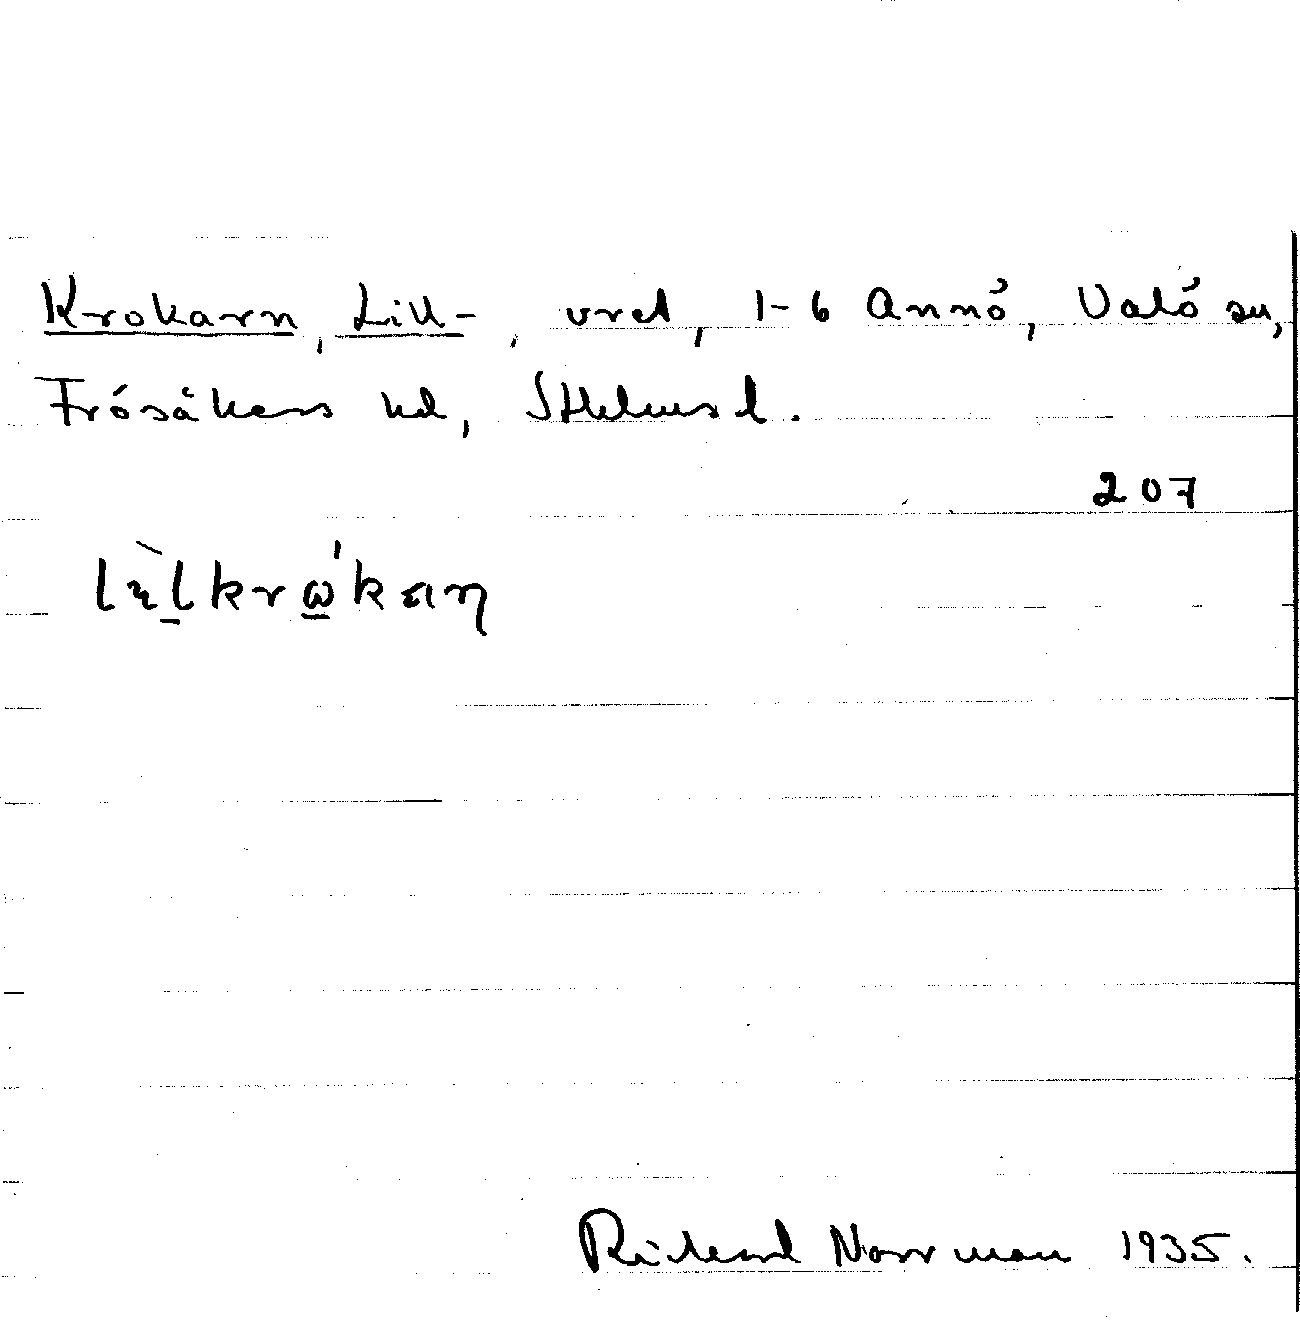 Krokarn, Lill-, vret, 1-6 Annö, Valö sn,
Frösåkers hd, Sthlms l.
207
Richard Norrman 1935.